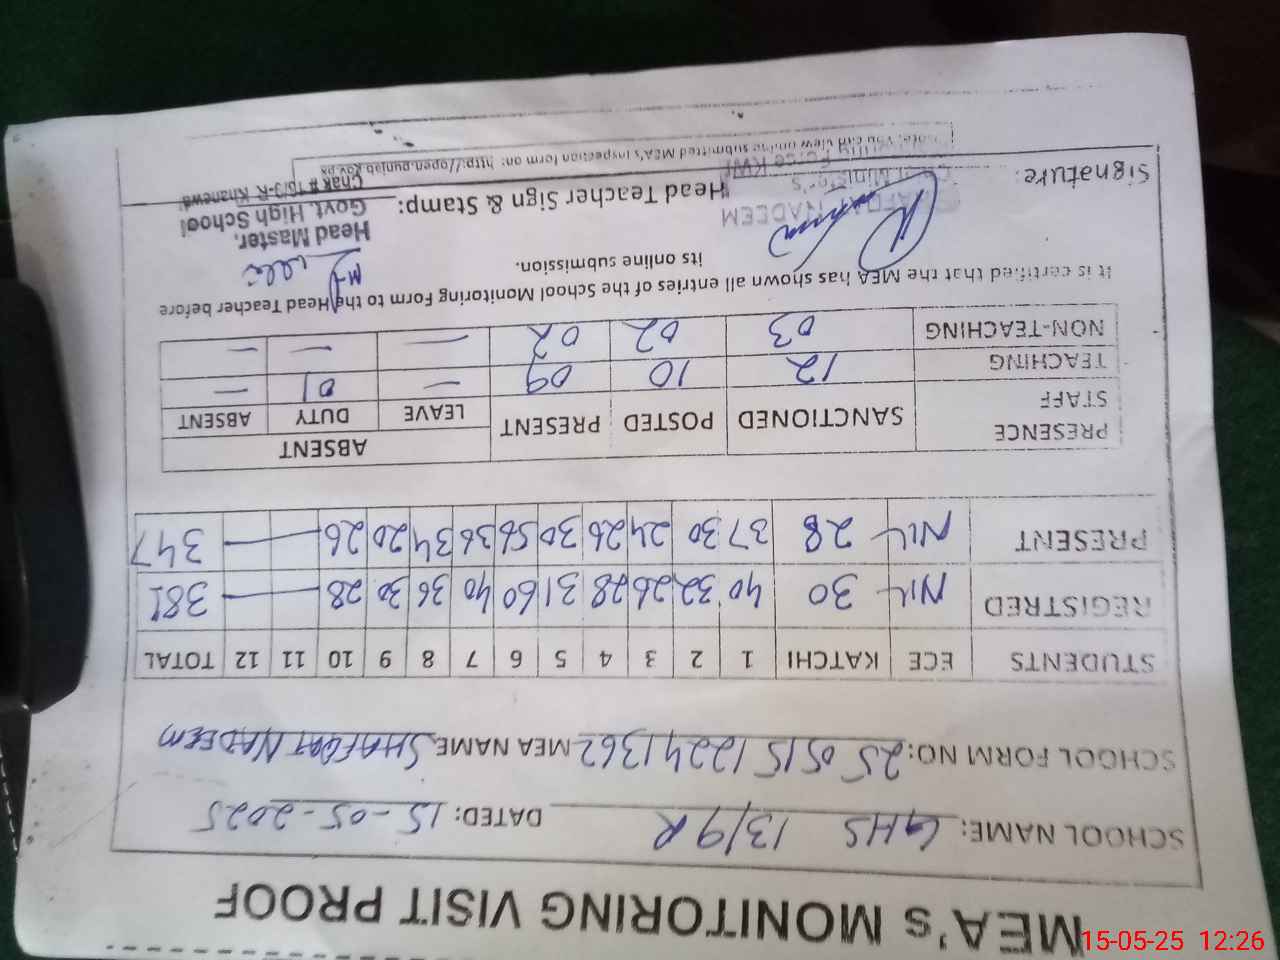 MEA's MONITORING VISIT PROOF
SCHOOL NAME: GHS 13/9R DATED: 15-05-2025
SCHOOL FORM NO: 25 0515 12241362 MEA NAME SHAFQAT NADEEM
STUDENTS ECE KATCHI 1 2 3 4 5 6 7 8 9 10 11 12 TOTAL
REGISTRED NIL 30 40 32 26 28 31 60 40 36 30 28 — 381
PRESENT NIL 28 37 30 24 26 30 56 36 34 20 26 — 347
PRESENCE STAFF SANCTIONED POSTED PRESENT ABSENT
LEAVE DUTY ABSENT
TEACHING 12 10 09 — 01 —
NON-TEACHING 03 02 02 — — —
It is certified that the MEA has shown all entries of the School Monitoring Form to the Head Teacher before
its online submission.
Signature: Head Teacher Sign & Stamp:
NADEEM
Head Master,
Govt. High School
Note: You can view online submitted MEA's inspection form on: http://open.punjab.gov.pk
15-05-25 12:26